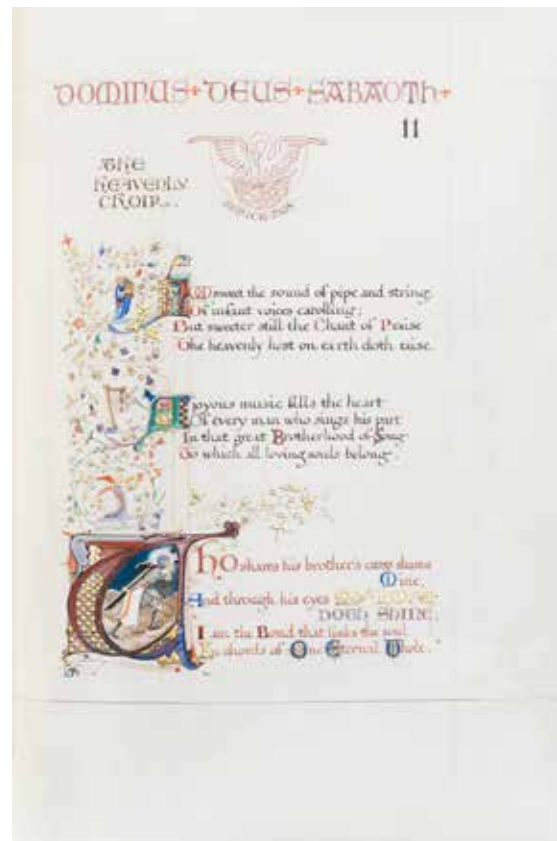 DOMINUS + DEUS + SABAOTH +
11
THE
HEAVENLY
CHOIR
sweet the sound of pipe and string
Of infant voices carolling;
But sweeter still the Chant of Praise
The heavenly host on earth doth raise.
joyous music fills the heart
Of every man who sings his part
In that great Brotherhood of Song
To which all loving souls belong
WhO shares his brother's shares
Mine,
And through his eyes
DOTH SHINE;
I am the Bond that links the soul
In chords of One Eternal Whole.